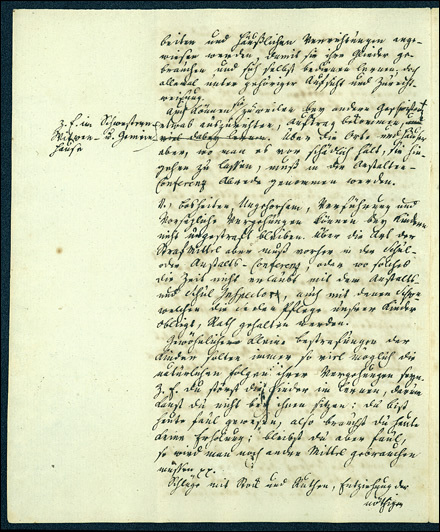 beiten und häußlichen Verrichtungen ange-
wiesen werden, damit sie ihre Glieder ge-
brauchen und sich selbst bedienen lernen; doch
allemal unter gehöriger Aufsicht und Zurecht-
weisung.
Auch können sie zuweilen bey andern Geschwistern
z. E. im Schwestern
etwas auszurichten, Auftrag bekommen,
Witwen- u. Gemein
Über die Orte und Häuser
Hause
aber, wo man es vor schädlich hält, sie hin-
gehen zu lassen, muß in der Anstalten-
Conferenz Abrede genommen werden.
Bosheiten, Ungehorsam, Verführung und
Vorsezliche Vergehungen können bey Kindern
nicht ungestraft bleiben. Über die Art der
Straf Mittel aber muß vorher in der Schul-
oder Anstalts-Conferenz, oder wo solches
die Zeit nicht erlaubt mit dem Anstalts-
und Schul Inspector, auch mit denen
welchen die Pflege unsrer Kinder
obligt, Rath gehalten werden.
Gewöhnliche kleine bestrafungen der
Kinder sollen immer so viel möglich die
natürlichen folgen ihrer Vergehungen seyn.
z. E. du störst die Kinder im lernen, darum
kanst du nicht bey ihnen sitzen: du bist
heute faul gewesen, also brauchst du heute
keine Erholung: bleibst du aber faul,
so wird man noch andre Mittel gebrauchen
müssen pp.
Schläge mit Stok und Ruthen, Entziehung der
nöthigen